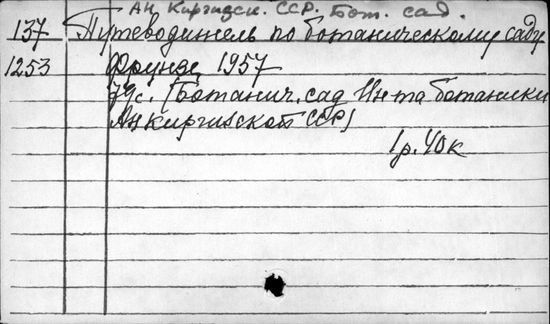 АН Киргизск. ССР. Бот. сад.
137 Путеводитель по ботаническому саду
1253 Фрунзе 1957
79с. (Ботанич. сад Ин-та ботаники
АН Киргизской ССР)
1р. 40к